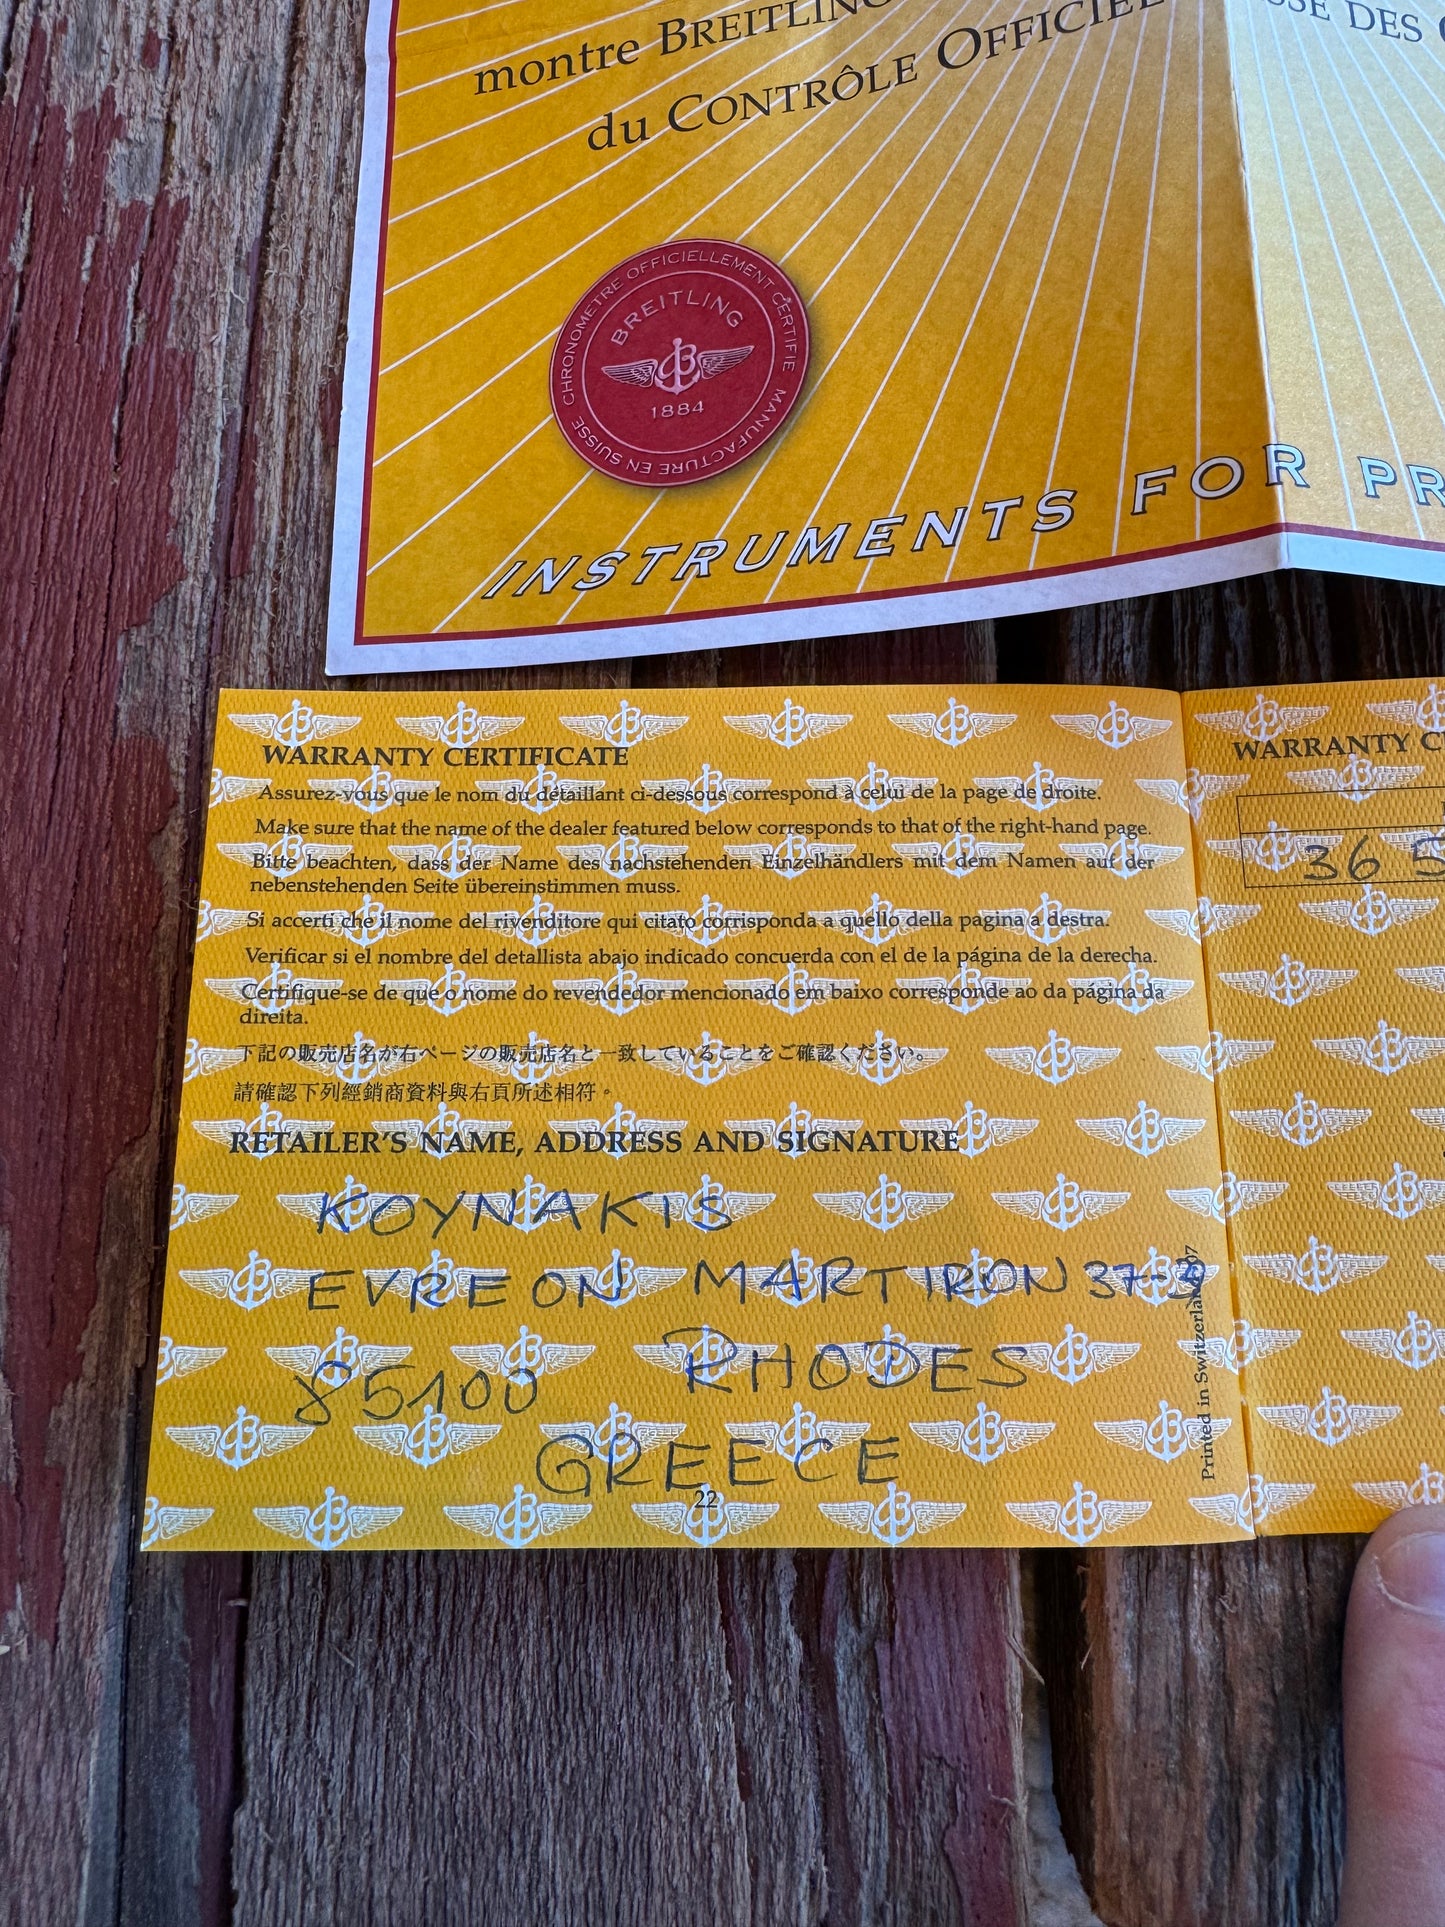 montre BREITLING
SSE DES
du CONTRÔLE OFFICIEL
CHRONOMETRE OFFICIELLEMENT CERTIFIE MANUFACTURE EN SUISSE
BREITLING
1884
INSTRUMENTS FOR PR
WARRANTY CERTIFICATE
Assurez-vous que le nom du détaillant ci-dessous correspond à celui de la page de droite.
Make sure that the name of the dealer featured below corresponds to that of the right-hand page.
Bitte beachten, dass der Name des nachstehenden Einzelhändlers mit dem Namen auf der
nebenstehenden Seite übereinstimmen muss.
Si accerti che il nome del rivenditore qui citato corrisponda a quello della pagina a destra.
Verificar si el nombre del detallista abajo indicado concuerda con el de la página de la derecha.
Certifique-se de que o nome do revendedor mencionado em baixo corresponde ao da página da
direita.
下記の販売店名が右ページの販売店名と一致していることをご確認ください。
請確認下列經銷商資料與右頁所述相符。
RETAILER'S NAME, ADDRESS AND SIGNATURE
KOYNAKIS
EVREON MARTIRON 37-3
85100 RHODES
GREECE
22
Printed in Switzerland
WARRANTY C
36 5